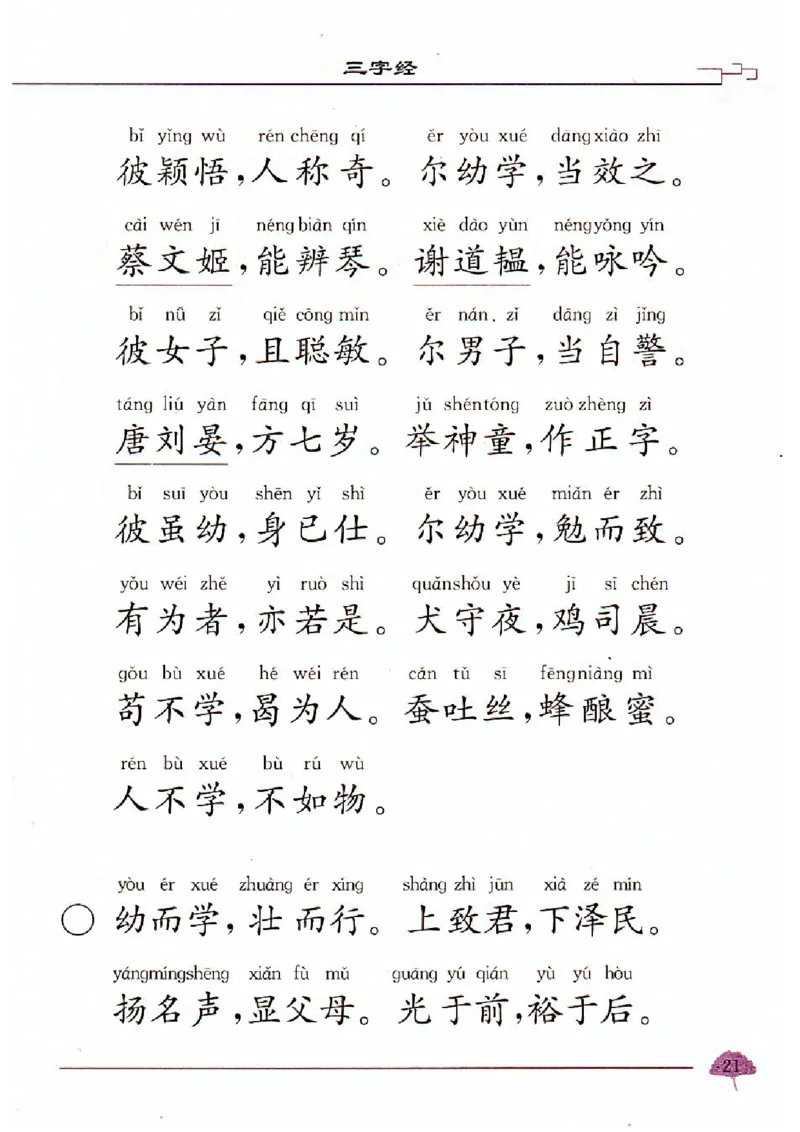 三字经
bǐ yǐng wù rén chēng qí ěr yòu xué dāng xiào zhī
彼颖悟，人称奇。尔幼学，当效之。
cài wén jī néng biàn qín xiè dào yùn néng yǒng yín
蔡文姬，能辨琴。谢道韫，能咏吟。
bǐ nǚ zǐ qiě cōng mǐn ěr nán zǐ dāng zì jǐng
彼女子，且聪敏。尔男子，当自警。
táng liú yàn fāng qī suì jǔ shén tóng zuò zhèng zì
唐刘晏，方七岁。举神童，作正字。
bǐ suī yòu shēn yǐ shì ěr yòu xué miǎn ér zhì
彼虽幼，身已仕。尔幼学，勉而致。
yǒu wéi zhě yì ruò shì quǎn shǒu yè jī sī chén
有为者，亦若是。犬守夜，鸡司晨。
gǒu bù xué hé wéi rén cán tǔ sī fēng niàng mì
苟不学，曷为人。蚕吐丝，蜂酿蜜。
rén bù xué bù rú wù
人不学，不如物。
yòu ér xué zhuàng ér xíng shàng zhì jūn xià zé mín
幼而学，壮而行。上致君，下泽民。
yáng míng shēng xiǎn fù mǔ guāng yú qián yù yú hòu
扬名声，显父母。光于前，裕于后。
21